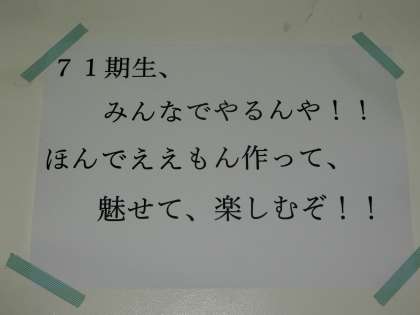 ７１期生、
みんなでやるんや！！
ほんでええもん作って、
魅せて、楽しむぞ！！